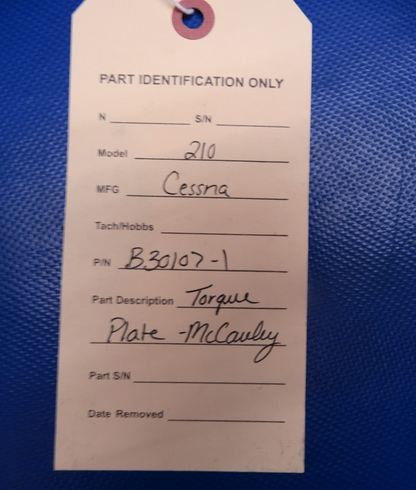 PART IDENTIFICATION ONLY
N S/N
Model 210
MFG Cessna
Tach/Hobbs
P/N B30107-1
Part Description Torque
Plate - McCauley
Part S/N
Date Removed